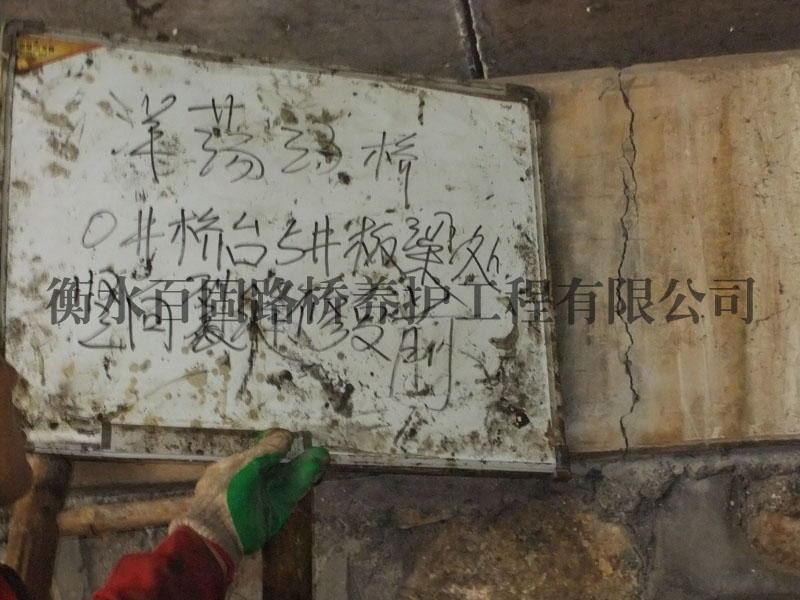 洋荡沟桥
0#桥台5#板梁处
竖向裂缝修复前
衡水百固路桥养护工程有限公司